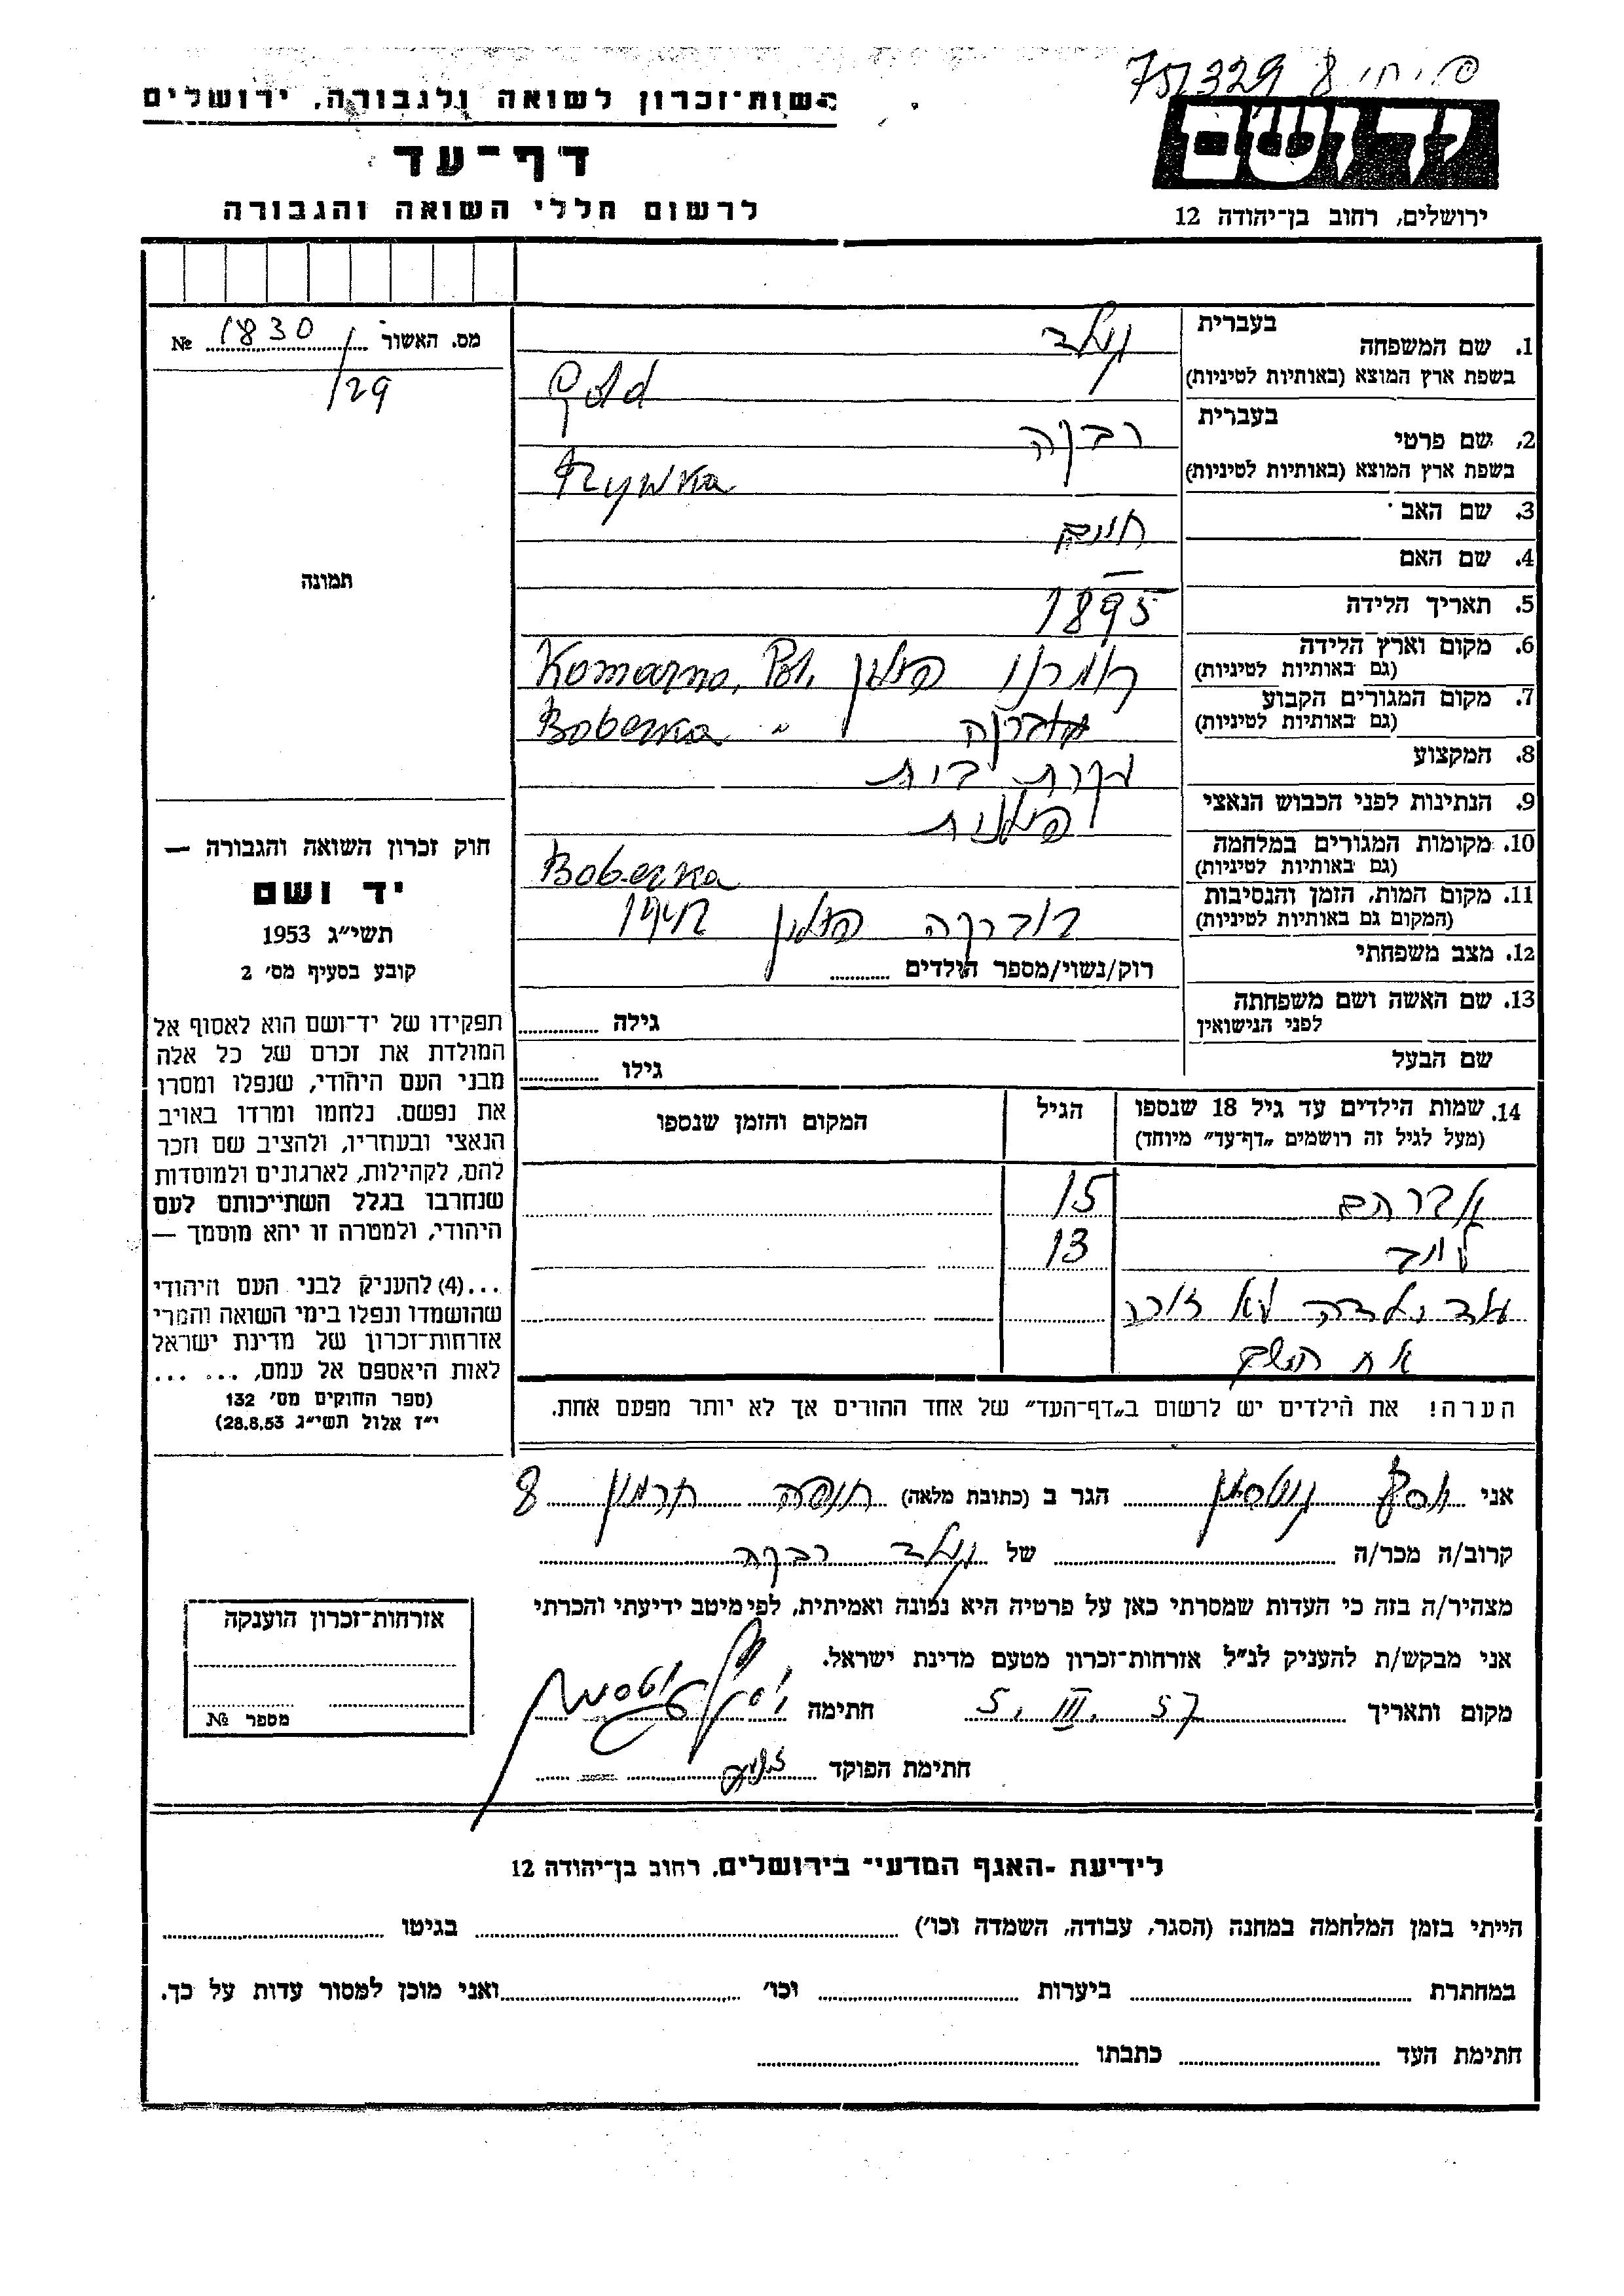 75/329 8
רשות־זכרון לשואה ולגבורה, ירושלים
דף־עד
לרשום חללי השואה והגבורה
ידושם
ירושלים, רחוב בן־יהודה 12
מס. האשור 1830 №
/29
תמונה
חוק זכרון השואה והגבורה —
יד ושם
תשי״ג 1953
קובע בסעיף מס׳ 2
תפקידו של יד־ושם הוא לאסוף אל
המולדת את זכרם של כל אלה
מבני העם היהודי, שנפלו ומסרו
את נפשם. נלחמו ומרדו באויב
הנאצי ובעוזריו, ולהציב שם וזכר
להם, לקהילות, לארגונים ולמוסדות
שנחרבו בגלל השתייכותם לעם
היהודי, ולמטרה זו יהא מוסמך —
...(4) להעניק לבני העם היהודי
שהושמדו ונפלו בימי השואה והמרי
אזרחות־זכרון של מדינת ישראל
לאות היאספם אל עמם, ... ...
(ספר החוקים מס׳ 132
י״ז אלול תשי״ג 28.8.53)
1. שם המשפחה בעברית גולד
בשפת ארץ המוצא (באותיות לטיניות) Gold
2. שם פרטי בעברית רבקה
בשפת ארץ המוצא (באותיות לטיניות) Rywka
3. שם האב חיים
4. שם האם —
5. תאריך הלידה 1895
6. מקום וארץ הלידה (גם באותיות לטיניות) קומרנו פולין Komarno, Pol.
7. מקום המגורים הקבוע (גם באותיות לטיניות) בוברקה Boberka "
8. המקצוע עקרת בית
9. הנתינות לפני הכבוש הנאצי פולנית
10. מקומות המגורים במלחמה (גם באותיות לטיניות) Boberka
11. מקום המות, הזמן והנסיבות (המקום גם באותיות לטיניות) בוברקה פולין 1942
12. מצב משפחתי רוק/נשוי/מספר הילדים
13. שם האשה ושם משפחתה לפני הנישואין גילה
שם הבעל גילו
14. שמות הילדים עד גיל 18 שנספו (מעל לגיל זה רושמים „דף־עד״ מיוחד) הגיל המקום והזמן שנספו
אברהם 15
13
עוד ילדה לא זוכר
את השם
הערה! את הילדים יש לרשום ב„דף־העד״ של אחד ההורים אך לא יותר מפעם אחת.
אני יוסף הגר ב (כתובת מלאה) חיפה חרמון 8
קרוב/ה מכר/ה של גולד רבקה
מצהיר/ה בזה כי העדות שמסרתי כאן על פרטיה היא נכונה ואמיתית, לפי מיטב ידיעתי והכרתי
אני מבקש/ת להעניק לנ״ל אזרחות־זכרון מטעם מדינת ישראל.
מקום ותאריך 5. III. 57 חתימה
חתימת הפוקד
אזרחות־זכרון הוענקה
מספר №
לידיעת ־האגף המדעי־ בירושלים, רחוב בן־יהודה 12
הייתי בזמן המלחמה במחנה (הסגר, עבודה, השמדה וכו׳) בגיטו
במחתרת ביערות וכו׳ ואני מוכן למסור עדות על כך.
חתימת העד כתבתו